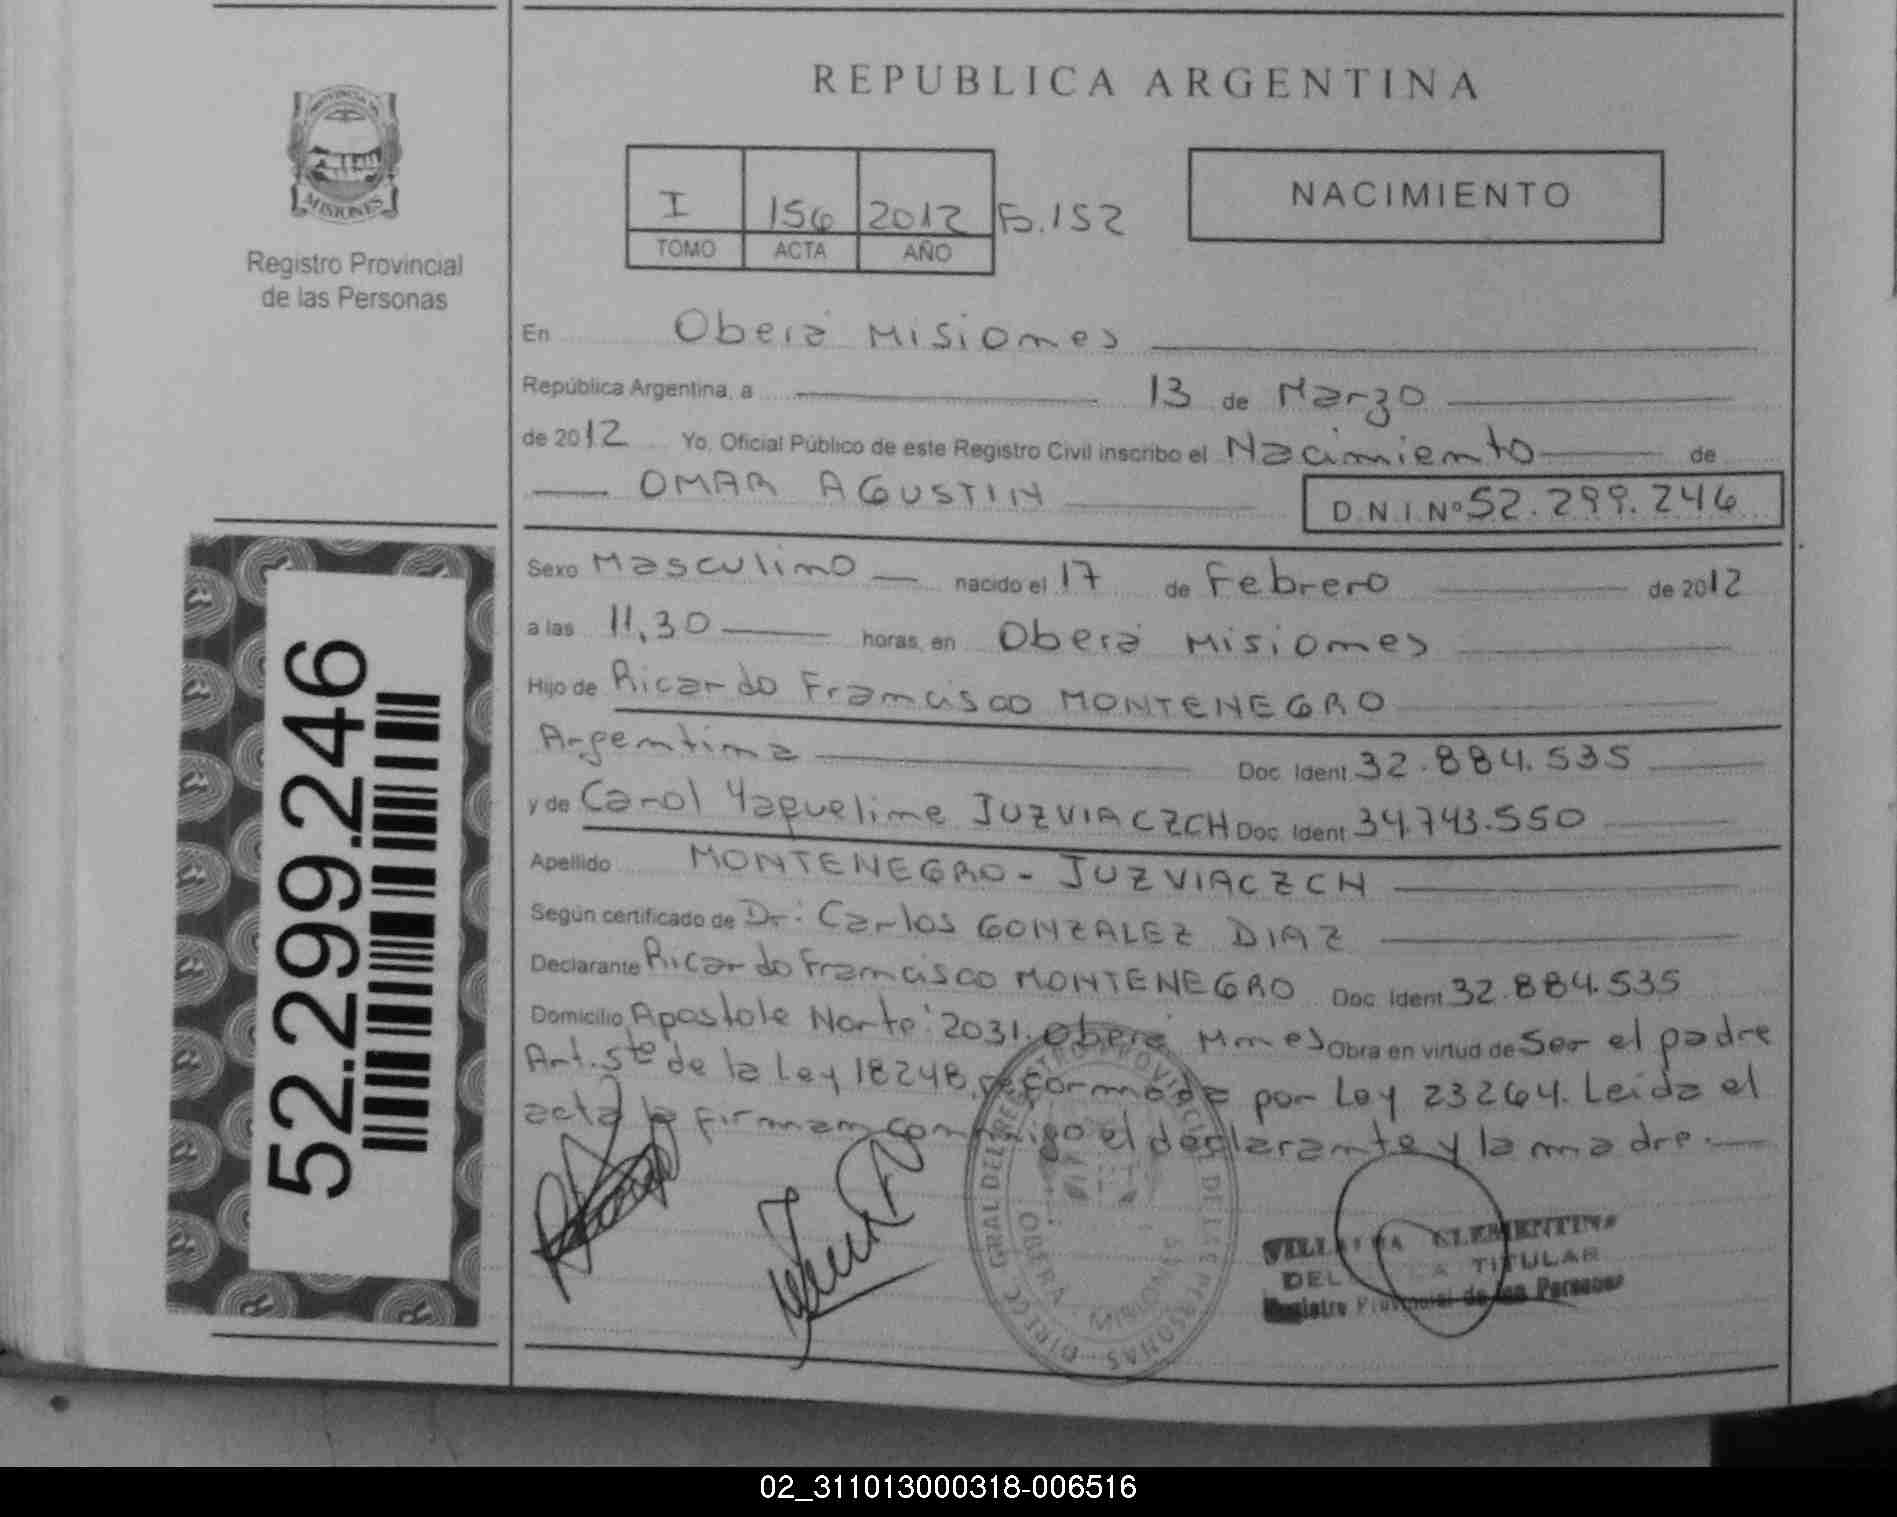 REPUBLICA ARGENTINA
PROVINCIA DE
MISIONES
Registro Provincial
de las Personas
I 156 2012 Fo.152
TOMO ACTA AÑO
NACIMIENTO
En Oberá Misiones
República Argentina, a 13 de Marzo
de 2012 Yo, Oficial Público de este Registro Civil inscribo el Nacimiento de
OMAR AGUSTIN D.N.I.Nº 52.299.246
Sexo Masculino nacido el 17 de Febrero de 2012
a las 11,30 horas, en Oberá Misiones
Hijo de Ricardo Francisco MONTENEGRO
Argentina Doc. Ident. 32.884.535
y de Carol Yaqueline JUZVIACZCH Doc. Ident. 34.743.550
Apellido MONTENEGRO - JUZVIACZCH
Según certificado de Dr: Carlos GONZALEZ DIAZ
Declarante Ricardo Francisco MONTENEGRO Doc. Ident. 32.884.535
Domicilio Apostole Norte: 2031. Oberá Mnes Obra en virtud de Ser el padre
Art. 5to de la Ley 18248, reformada por Ley 23264. Leida el
acta la firman conmigo el declarante y la madre.
52.299.246
DIRECC. GRAL DEL REGISTRO PROVINCIAL DE LAS PERSONAS
OBERÁ - MISIONES
CLEMENTINA
TITULAR
Registro Provincial de las Personas
02_311013000318-006516